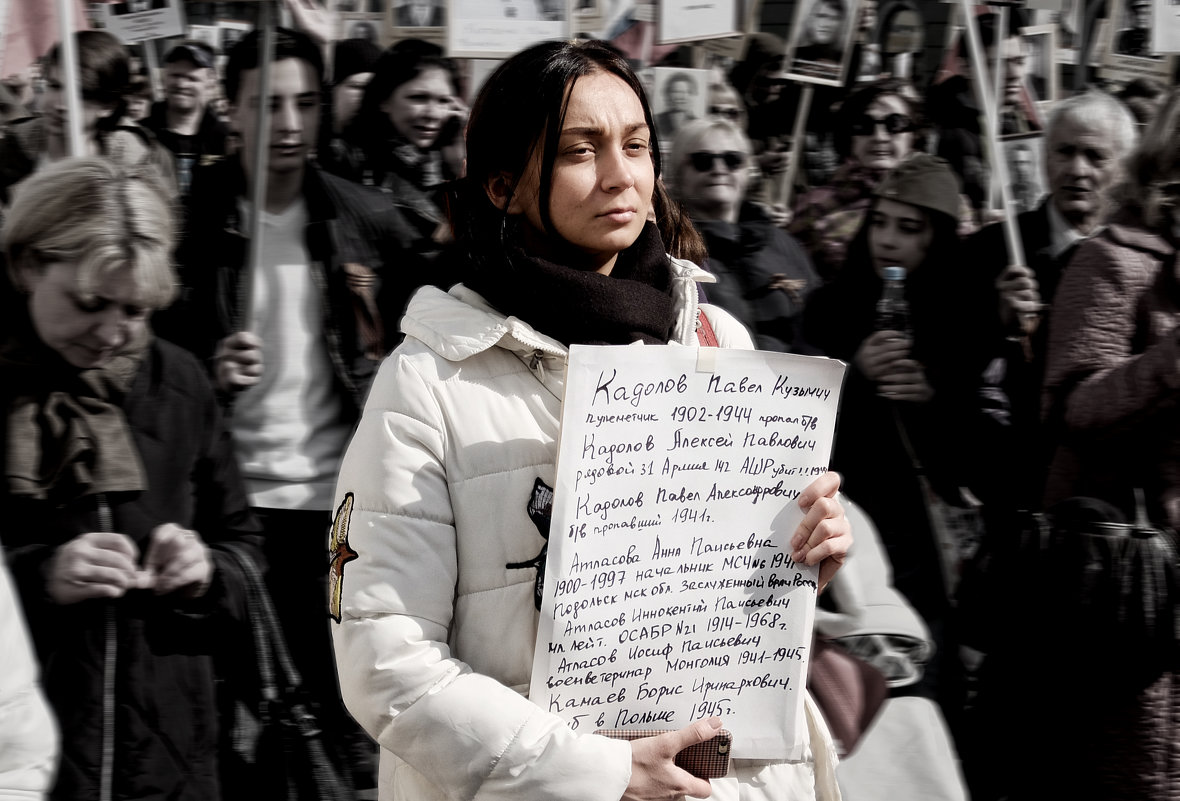 Кадолов Павел Кузьмич
пулеметчик 1902-1944 пропал б/в
Кадолов Алексей Павлович
рядовой 31 Армия 142 АШР убит
Кадолов Павел Александрович
б/в пропавший 1941г.
Атласова Анна Паисьевна
1900-1997 начальник МСЧ №6
Подольск мск обл. Заслуженный
Атласов Иннокентий Паисьевич
мл. лейт. ОСАБР №21 1914-1968г.
Атласов Иосиф Паисьевич
военветеринар Монголия 1941-1945.
Камаев Борис Иринархович.
в Польше 1945г.